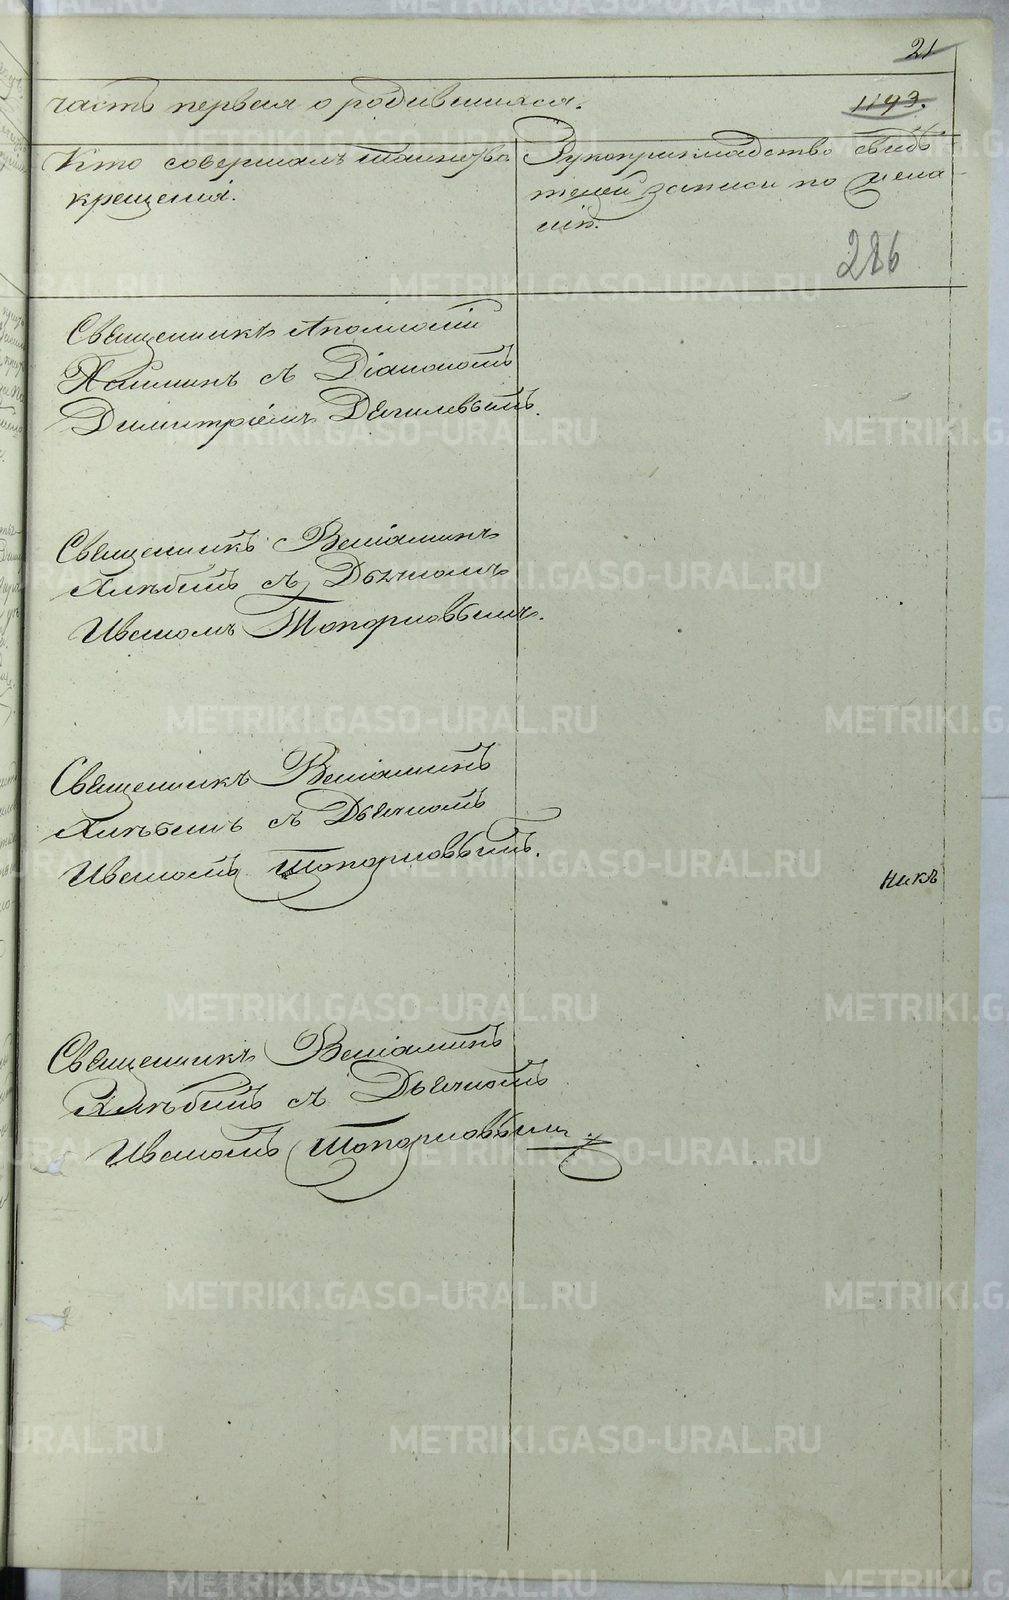 21
часть первая о родившихся.
1193.
Кто совершалъ таинство
крещенія.
Рукоприкладство свидѣ
телей записи по жела
нію.
286
Священникъ Аполлосій
съ Діакономъ
Димитріемъ
Священникъ Веніаминъ
Хлѣбинъ съ Дьячкомъ
Иваномъ Топорковымъ.
Священникъ Веніаминъ
Хлѣбинъ съ Дьячкомъ
Иваномъ Топорковымъ.
никъ
Священникъ Веніаминъ
Хлѣбинъ съ Дьячкомъ
Иваномъ Топорковымъ
METRIKI.GASO-URAL.RU